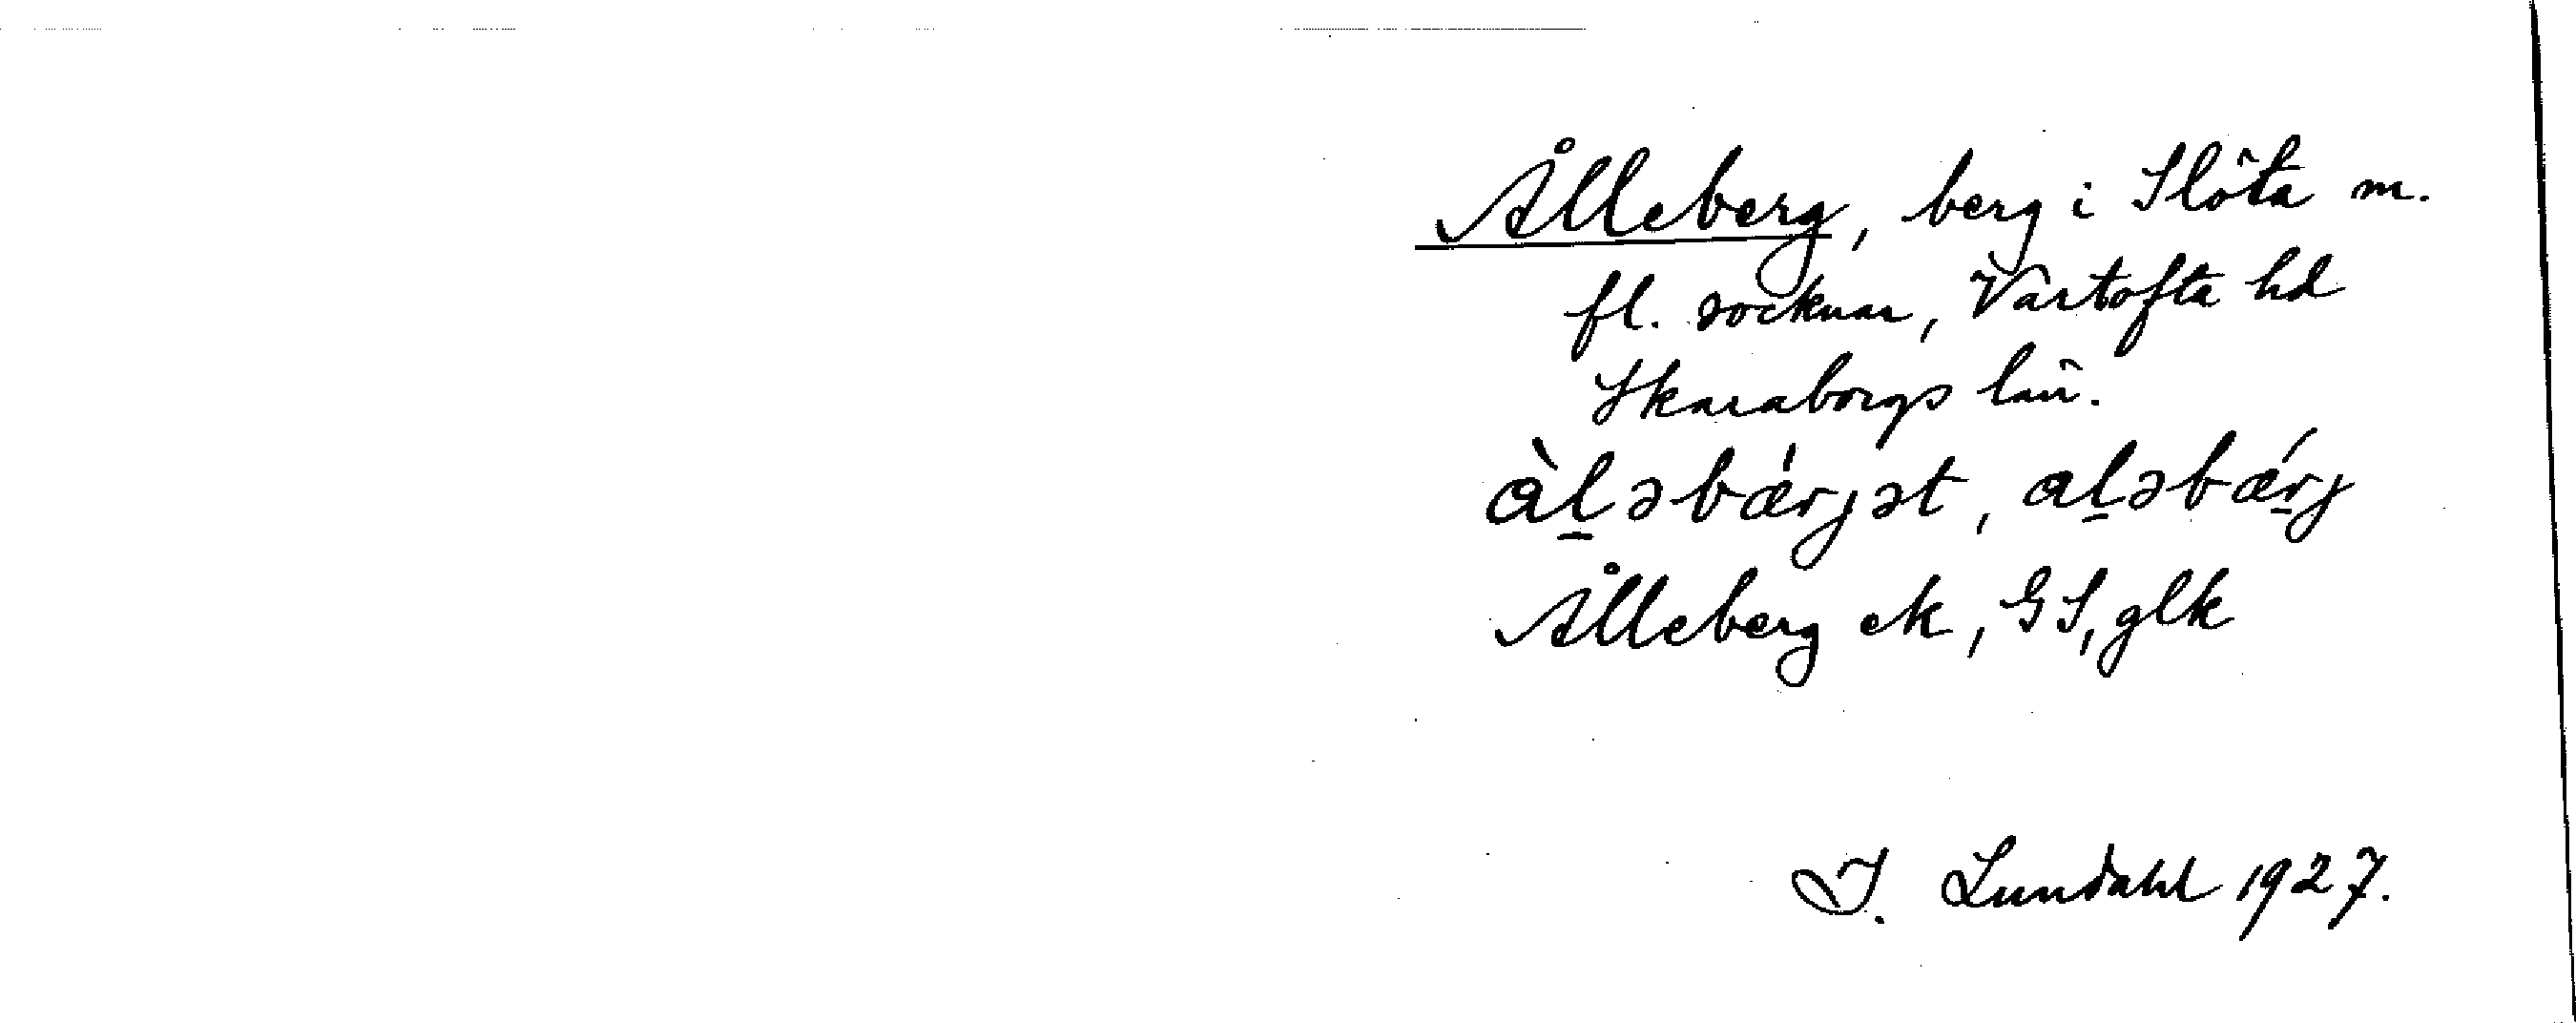 Ålleberg, berg i Slöta m.
fl. socknar, Vartofta hd
Skaraborgs län.
àl̠əbǽrjət, al̠əbǽr̠j
Ålleberg ek, GS, glk
I. Lundahl 1927.